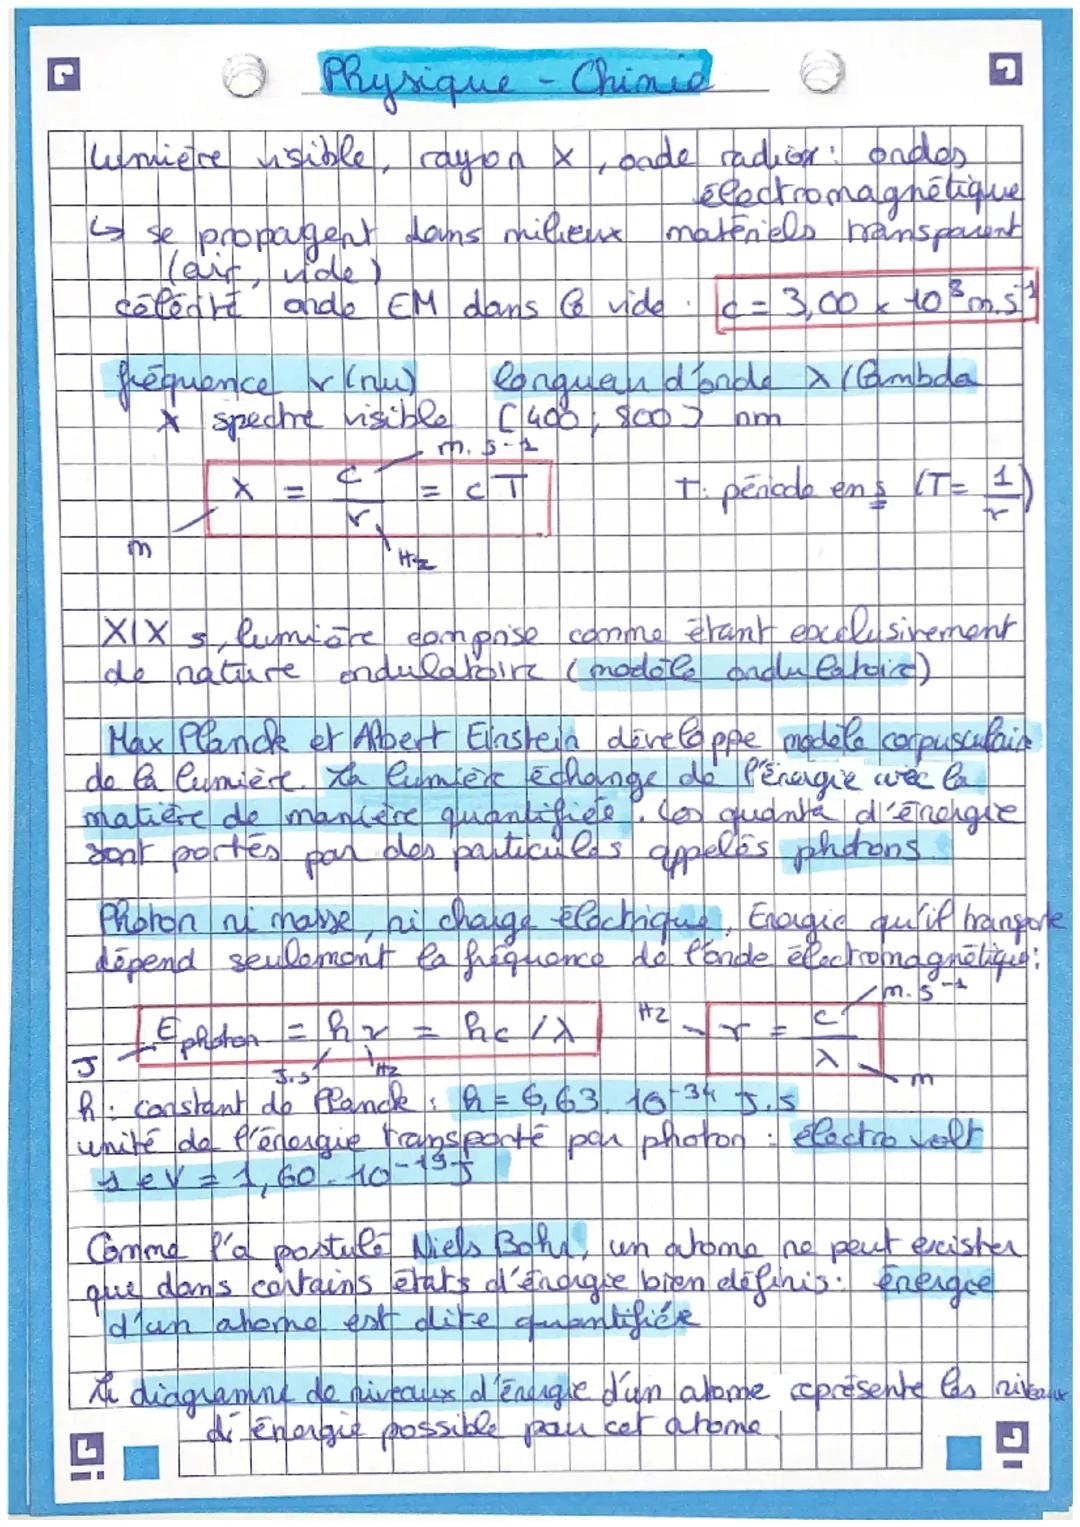 Physique - Chimie
Lumière visible, rayon X, onde radios : ondes
électromagnétique
↳ se propagent dans milieux matériels transparent
(air, vide)
célérité onde EM dans le vide : c = 3,00 × 10⁸ m.s⁻¹
fréquence ν (nu) longueur d'onde λ (lambda
λ spectre visible [400 ; 800] nm
m.s-1
λ = c/ν = cT T : période en s (T = 1/ν)
m
Hz
XIX s, lumière comprise comme étant exclusivement
de nature ondulatoire (modèle ondulatoire)
Max Planck et Albert Einstein développe modèle corpusculaire
de la lumière. La lumière échange de l'énergie avec la
matière de manière quantifiée. Les quanta d'énergie
sont portés par des particules appelés photons.
Photon ni masse, ni charge électrique. Energie qu'il transporte
dépend seulement la fréquence de l'onde électromagnétique :
m.s-1
E photon = hν = hc/λ Hz ν = c/λ
J J.s Hz m
h : constant de Planck : h = 6,63.10-34 J.s
unité de l'énergie transporté par photon : électro volt
1 eV = 1,60.10-19 J
Comme l'a postulé Niels Bohr, un atome ne peut exister
que dans certains états d'énergie bien définis : énergie
d'un atome est dite quantifiée
Le diagramme de niveaux d'énergie d'un atome représente les niveaux
d'énergie possible pour cet atome.